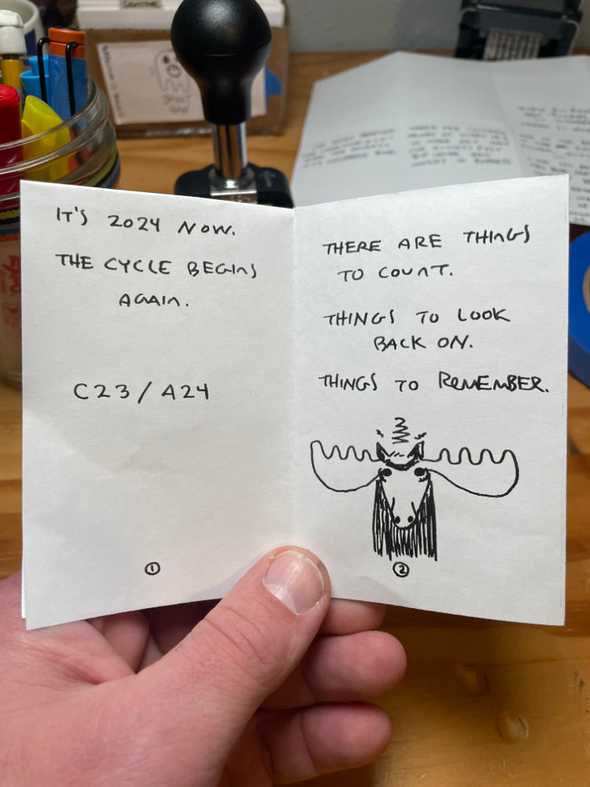 IT'S 2024 NOW.
THE CYCLE BEGINS
AGAIN.
C23/A24
1
THERE ARE THINGS
TO COUNT.
THINGS TO LOOK
BACK ON.
THINGS TO REMEMBER.
2